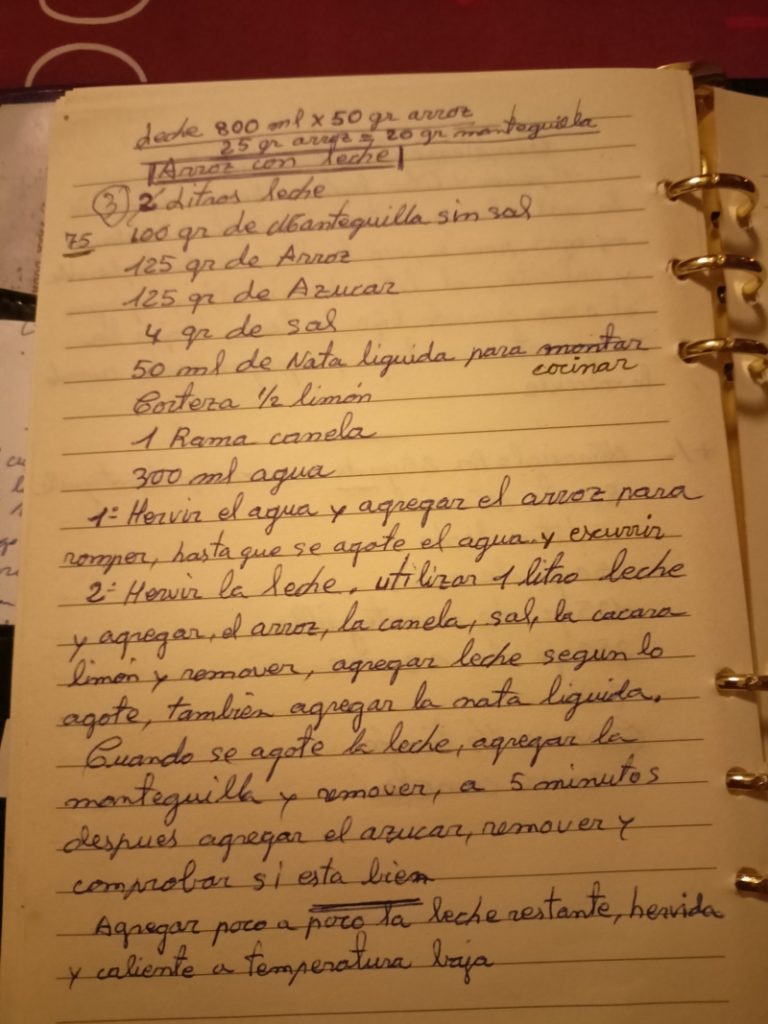 Leche 800 ml x 50 gr arroz
25 gr arroz = 20 gr mantequilla
Arroz con leche
3 2 Litros leche
75 100 gr de Mantequilla sin sal
125 gr de Arroz
125 gr de Azucar
4 gr de sal
50 ml de Nata liquida para montar
cocinar
Corteza 1/2 limón
1 Rama canela
300 ml agua
1º Hervir el agua y agregar el arroz para
romper, hasta que se agote el agua y escurrir
2º Hervir la leche, utilizar 1 litro leche
y agregar, el arroz, la canela, sal, la cacara
limón y remover, agregar leche segun lo
agote, tambien agregar la nata liquida.
Cuando se agote la leche, agregar la
mantequilla y remover, a 5 minutos
despues agregar el azucar, remover y
comprobar si esta bien
Agregar poco a poco la leche restante, hervida
y caliente a temperatura baja